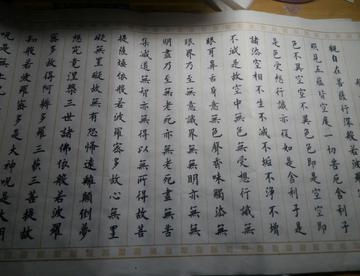 觀自在菩薩行深般若波羅
照見五蘊皆空度一切苦厄舍利子
色不異空空不異色色即是空空即
是色受想行識亦復如是舍利子是
諸法空相不生不滅不垢不淨不增
不減是故空中無色無受想行識無
眼耳鼻舌身意無色聲香味觸法無
眼界乃至無意識界無無明亦無無
明盡乃至無老死亦無老死盡無苦
集滅道無智亦無得以無所得故菩
提薩埵依般若波羅蜜多故心無罣
礙無罣礙故無有恐怖遠離顛倒夢
想究竟涅槃三世諸佛依般若波羅
蜜多故得阿耨多羅三藐三菩提故
知般若波羅蜜多是大神咒是大明
咒是無上